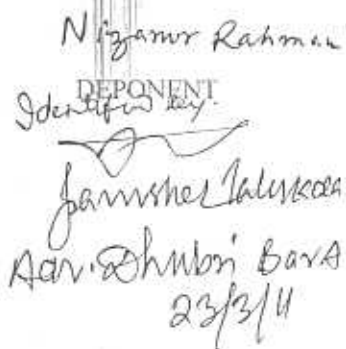 Nizamur Rahman
DEPONENT
Identified by.
Jamsher Talukdar
Adv. Dhubri Bar A
23/3/11